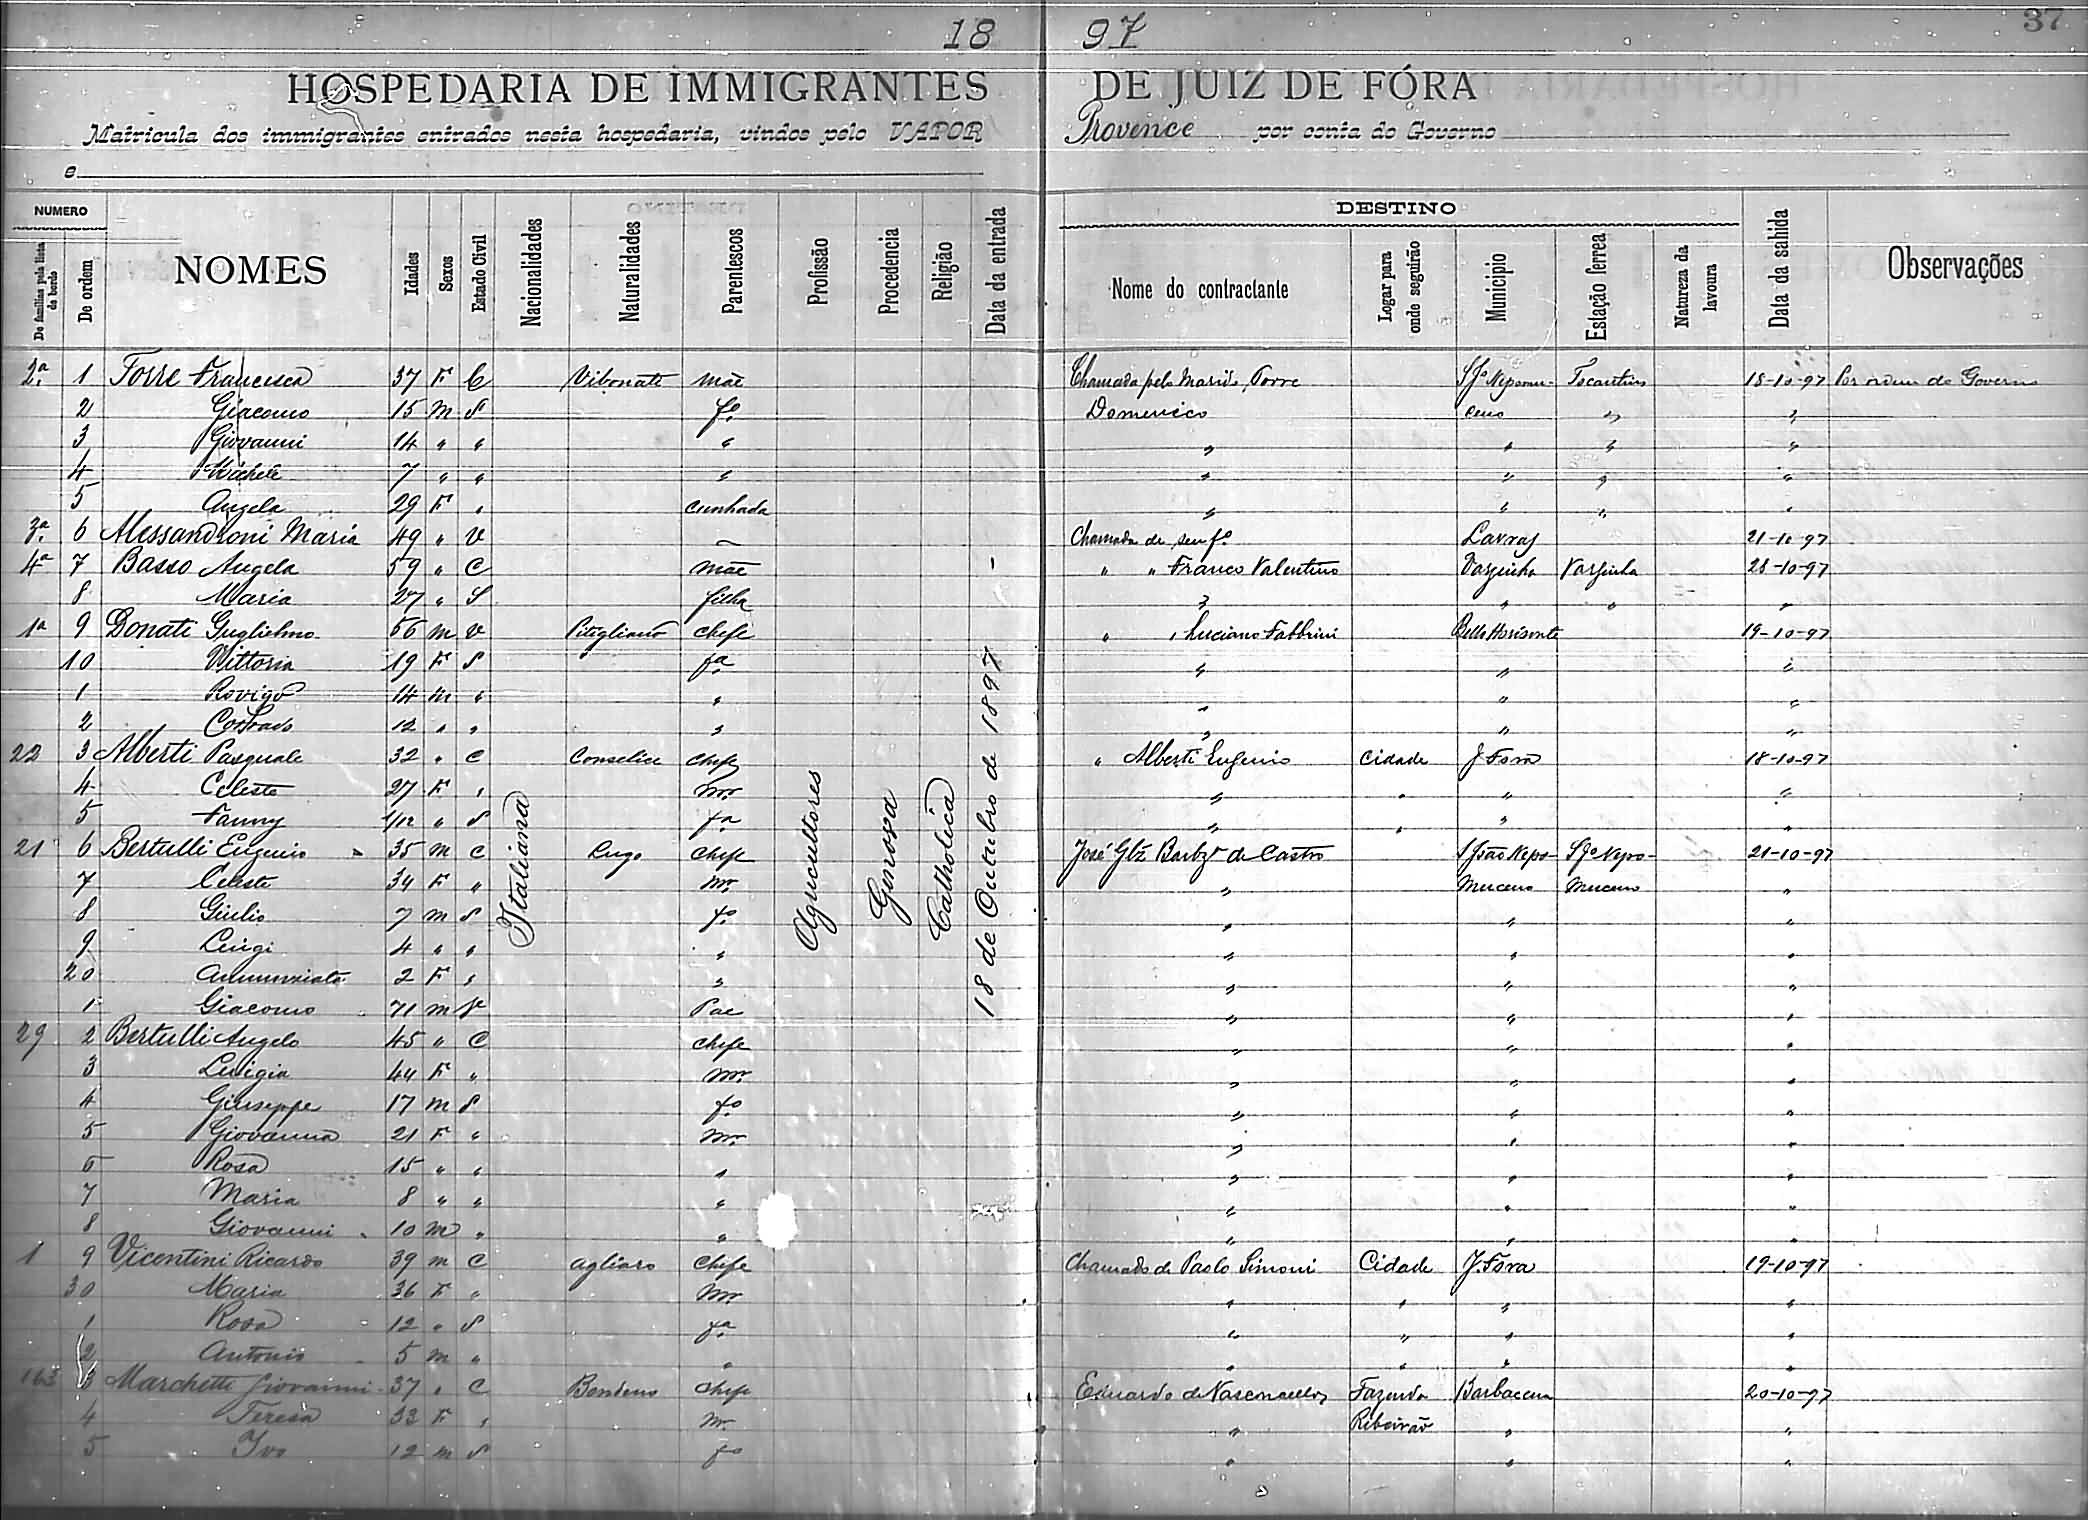 18 97
37
HOSPEDARIA DE IMMIGRANTES DE JUIZ DE FÓRA
Matricula dos immigrantes entrados nesta hospedaria, vindos pelo VAPOR Provence por conta do Governo
e
NUMERO DESTINO
De familias pela lista de bordo De ordem NOMES Idades Sexos Estado Civil Nacionalidades Naturalidades Parentescos Profissão Procedencia Religião Data da entrada Nome do contractante Logar para onde seguirão Municipio Estação ferrea Natureza da lavoura Data da sahida Observações
2ª 1 Torre Francisca 37 F C Vibonati mãe Chamada pelo Marido, Torre S Jº Nepomu- Tocantins 18-10-97 Por ordem do Governo
2 Giacomo 15 M S fº Domenico ceno " "
3 Giovanni 14 " " " " " " "
4 Michele 7 " " " " " " "
5 Angela 29 F " cunhada " " " "
3ª 6 Alessandroni Maria 49 " V — Chamada de seu fº Lavras 21-10-97
4ª 7 Basso Angela 59 " C mãe " " Franco Valentino Varginha Varginha 23-10-97
8 Maria 27 " S filha " " " "
1ª 9 Donati Guglielmo 56 M V Pitigliano chefe " " Luciano Fabbrini Bello Horisonte 19-10-97
10 Vittoria 19 F S fª " " "
1 Rovigo 14 M " " " " "
2 Corrado 12 " " " " " "
22 3 Alberti Pasquale 32 " C Conselice chefe " Alberti Eugenio Cidade J Fora 18-10-97
4 Celeste 27 F " mr " " " "
5 Fanny 1/12 " S fª " " " "
21 6 Bertulli Eugenio 35 M C Lugo chefe José Glz Barbzª de Castro S João Nepo- S Jº Nepo- 21-10-97
7 Celeste 34 F " mr. " muceno muceno "
8 Giulio 7 M S fº " " "
9 Luigi 4 " " " " " "
20 Annunziata 2 F " " " " "
1 Giacomo 71 M V Pae " " "
29 2 Bertulli Angelo 45 " C chefe " " "
3 Luigia 44 F " mr. " " "
4 Giuseppe 17 M S fº " " "
5 Giovanna 21 F " mr. " " "
6 Rosa 15 " " " " " "
7 Maria 8 " " " " " "
8 Giovanni 10 M " " " " "
1 9 Vicentini Ricardo 39 M C agliaro chefe Chamado de Paolo Simoni Cidade J. Fora 19-10-97
30 Maria 36 F " mr. " " " "
1 Rosa 12 " S fª " " " "
2 Antonio 5 M " " " " " "
163 3 Marchetti Giovanni 37 " C Bondeno chefe Eduardo de Vasconcellos Fazenda Barbacena 20-10-97
4 Teresa 33 F " mr. " Ribeirão " "
5 Ivo 12 M S fº " " "
Italiana
Agricultores
Genova
Catholica
18 de Outubro de 1897